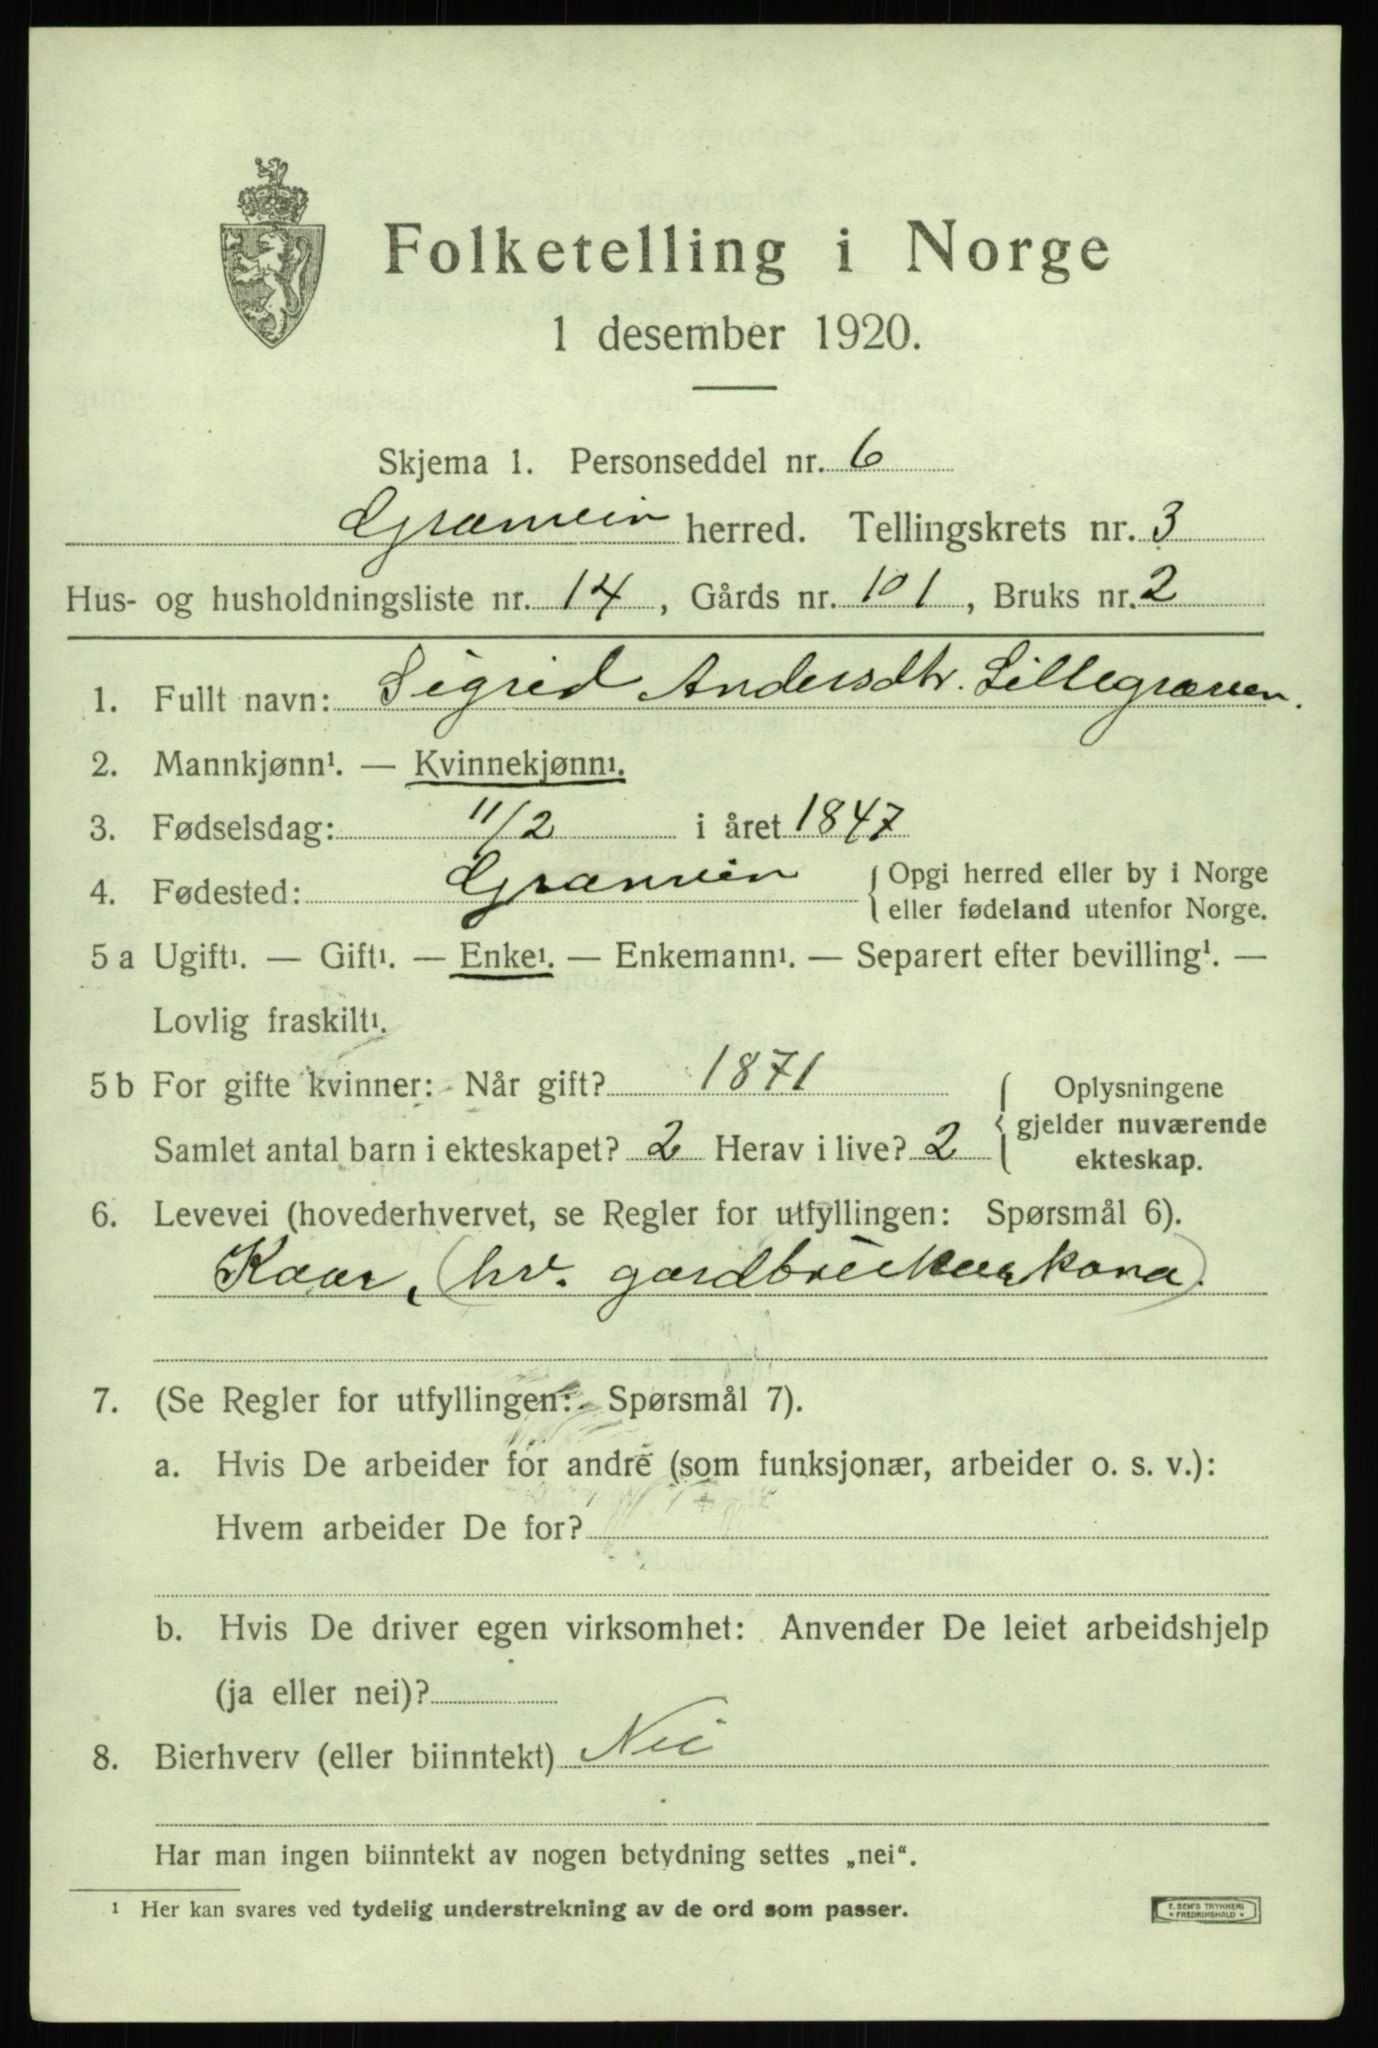 Folketelling i Norge
1 desember 1920.
Skjema 1. Personseddel nr. 6
Granvin herred. Tellingskrets nr. 3
Hus- og husholdningsliste nr. 14, Gårds nr. 101, Bruks nr. 2
1. Fullt navn: Sigrid Andersdtr. Lillegraven.
2. Mannkjønn¹. — Kvinnekjønn¹.
3. Fødselsdag: 11/2 i året 1847
4. Fødested: Granvin { Opgi herred eller by i Norge
eller fødeland utenfor Norge.
5 a Ugift¹. — Gift¹. — Enke¹. — Enkemann¹. — Separert efter bevilling¹. —
Lovlig fraskilt¹.
5 b For gifte kvinner: Når gift? 1871 { Oplysningene
gjelder nuværende
ekteskap.
Samlet antal barn i ekteskapet? 2 Herav i live? 2
6. Levevei (hovederhvervet, se Regler for utfyllingen: Spørsmål 6).
Kaar, (hv. gardbrukarkona).
7. (Se Regler for utfyllingen: Spørsmål 7).
a. Hvis De arbeider for andre (som funksjonær, arbeider o. s. v.):
Hvem arbeider De for?
b. Hvis De driver egen virksomhet: Anvender De leiet arbeidshjelp
(ja eller nei)?
8. Bierhverv (eller biinntekt) Nei
Har man ingen biinntekt av nogen betydning settes „nei".
¹ Her kan svares ved tydelig understrekning av de ord som passer.
E. SEM'S TRYKKERI
* FREDRIKSHALD *